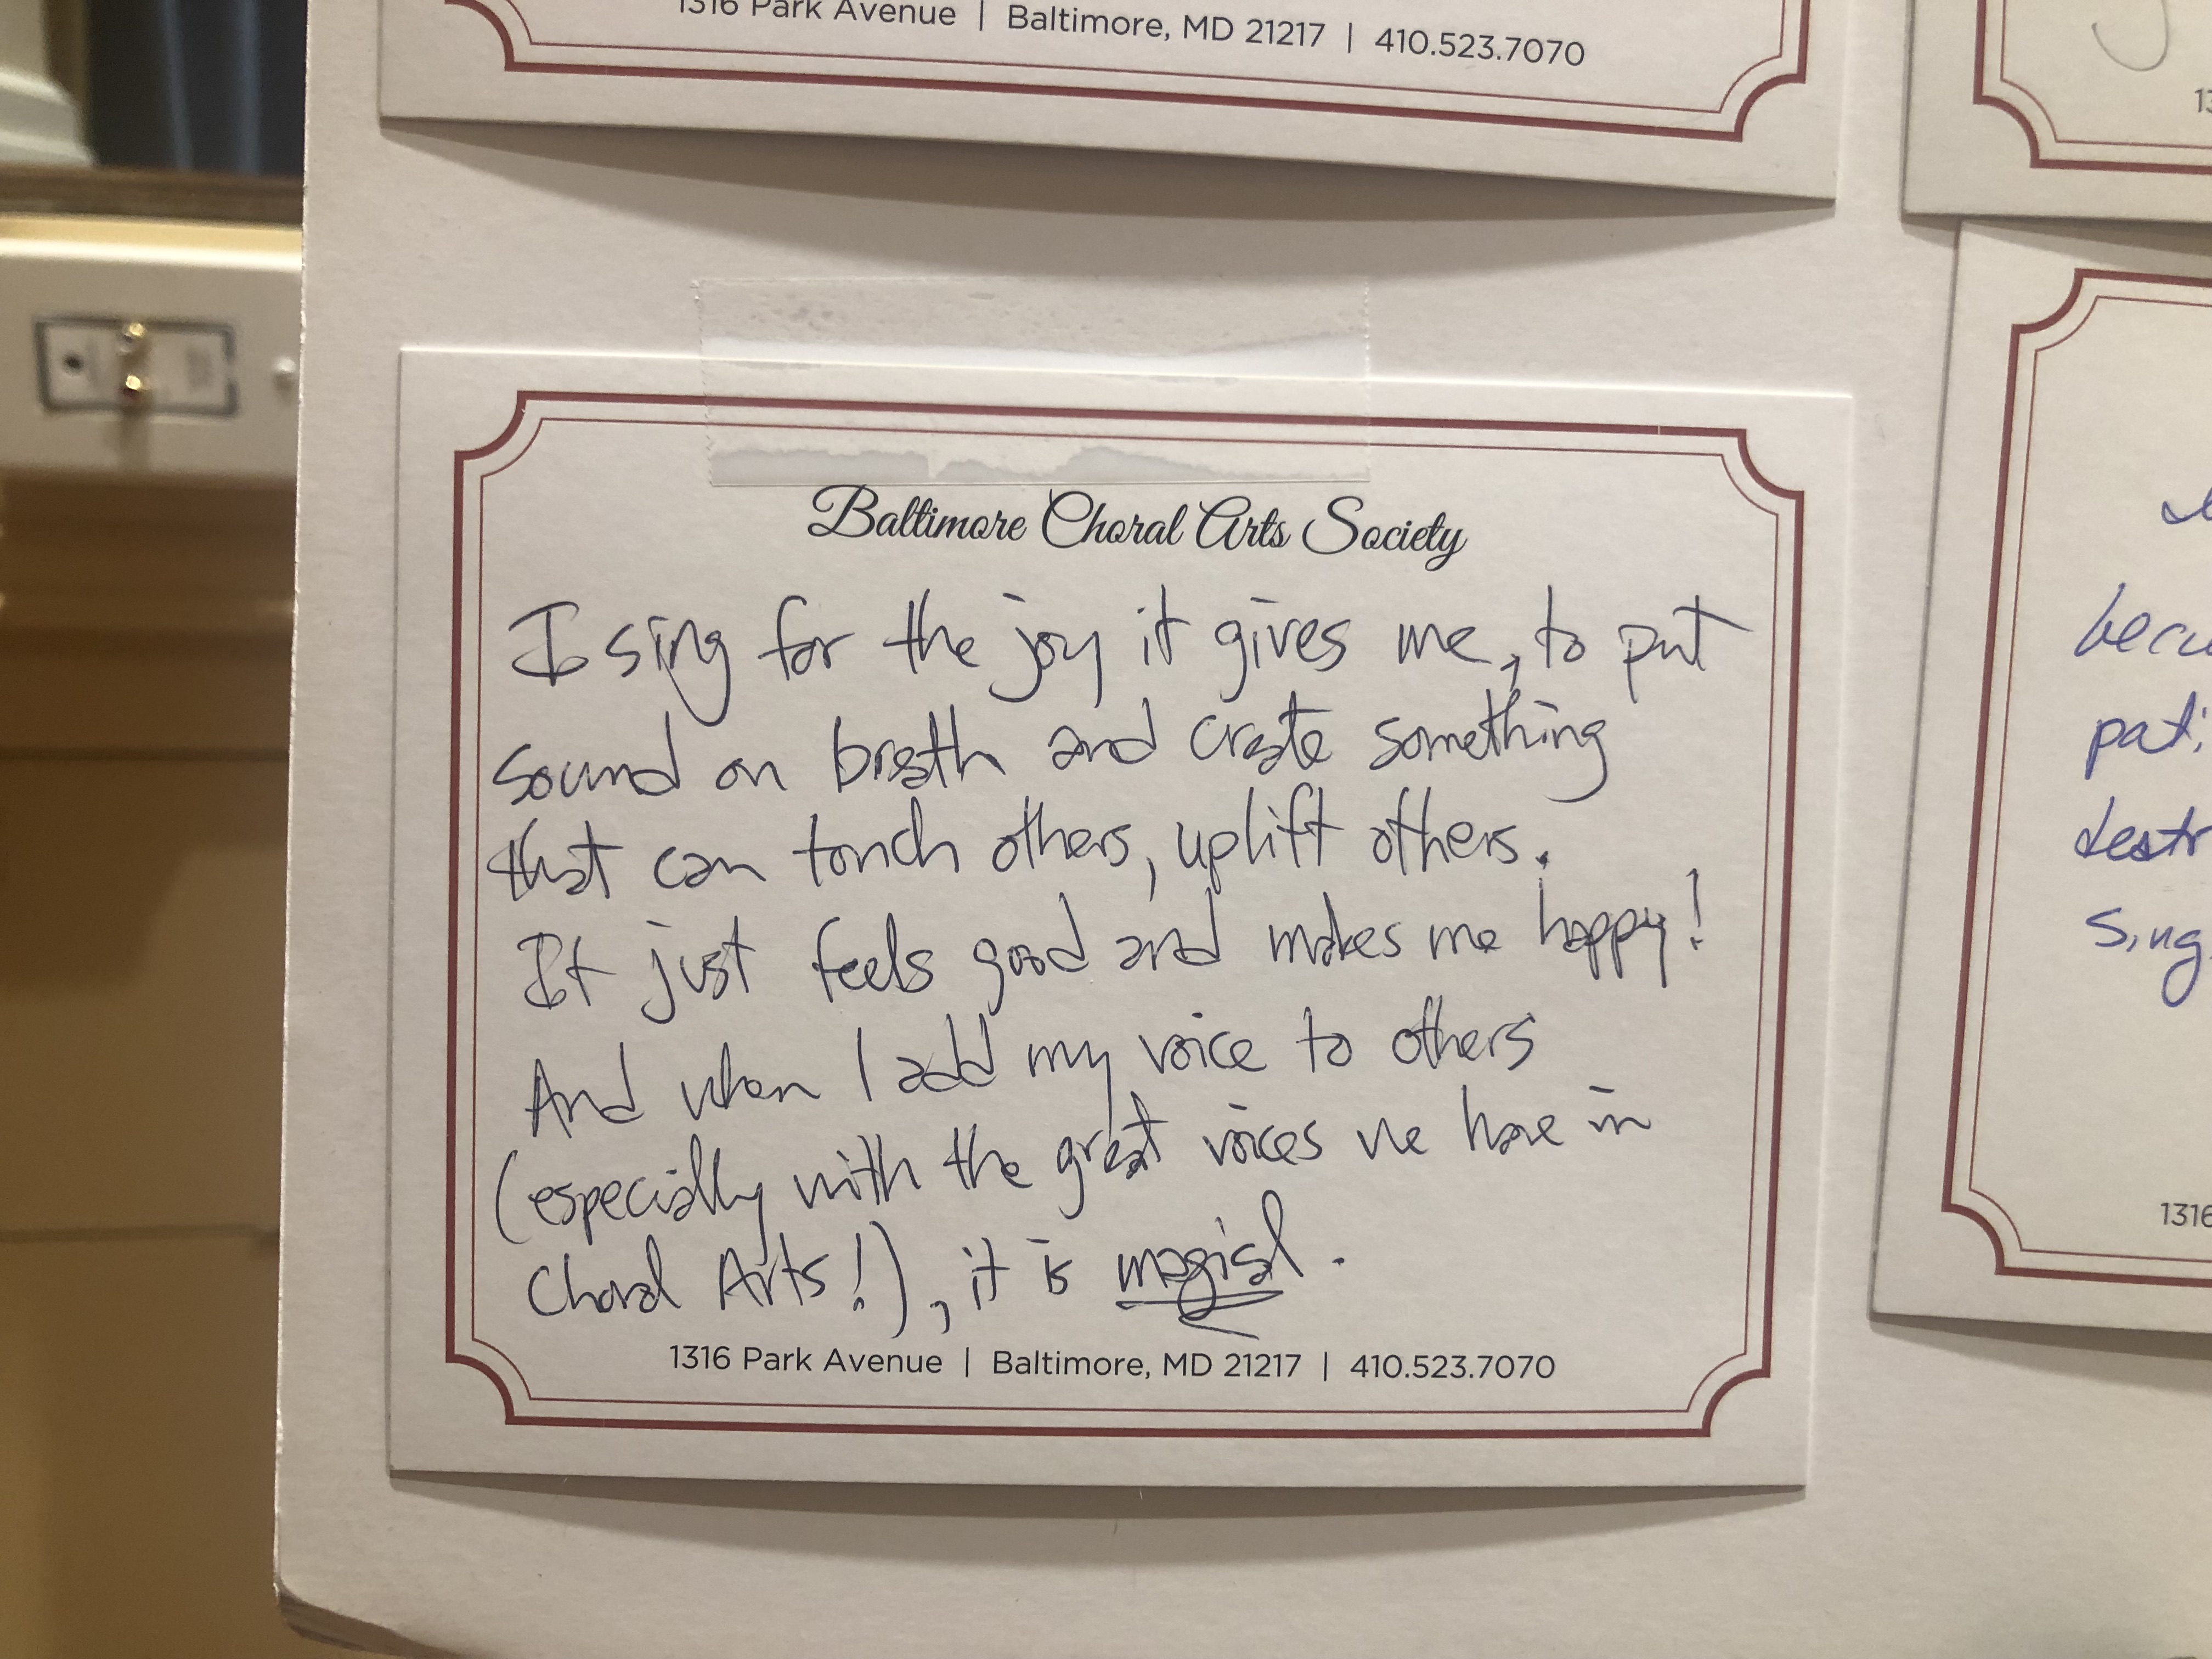 1316 Park Avenue | Baltimore, MD 21217 | 410.523.7070
Baltimore Choral Arts Society
I sing for the joy it gives me, to put
sound on breath and create something
that can touch others, uplift others.
It just feels good and makes me happy!
And when I add my voice to others
(especially with the great voices we have in
Choral Arts!), it is magical.
1316 Park Avenue | Baltimore, MD 21217 | 410.523.7070
becu
pati
destr
Sing
1316